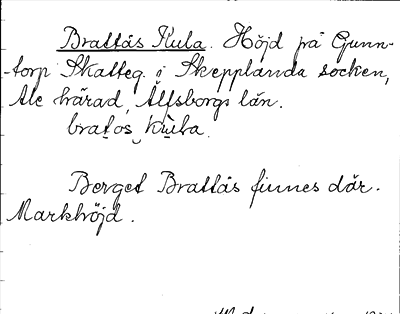 Brattås Kula. Höjd på Gunn-
-torp Skatteg. i Skepplanda socken,
Ale härad, Älfsborgs län.
bratos kula.
Berget Brattås finnes där.
Markhöjd.